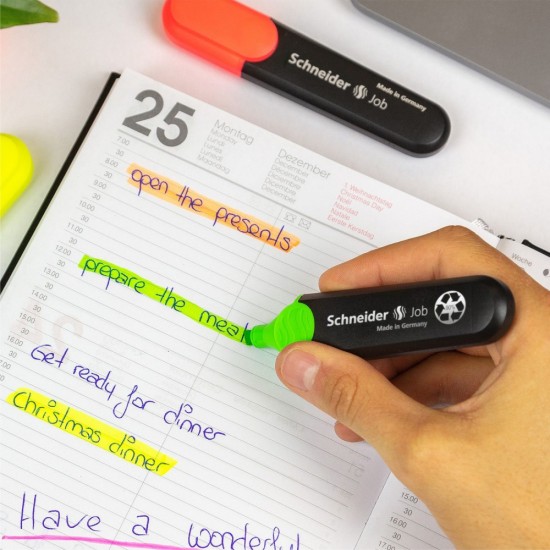 Schneider Job
Made in Germany
25
Montag
Monday
Lundi
Lunedì
Maandag
Dezember
December
Décembre
Dicembre
December
1. Weihnachtstag
Christmas Day
Noël
Navidad
Natale
Eerste Kerstdag
Woche
7.00
30
8.00
30
9.00
30
10.00
30
11.00
30
12.00
30
13.00
30
14.00
30
15.00
30
16.00
30
17.00
open the presents
prepare the meal
Get ready for dinner
Christmas dinner
Have a wonderful
Schneider Job
Made in Germany
15.00
30
16.00
30
17.00